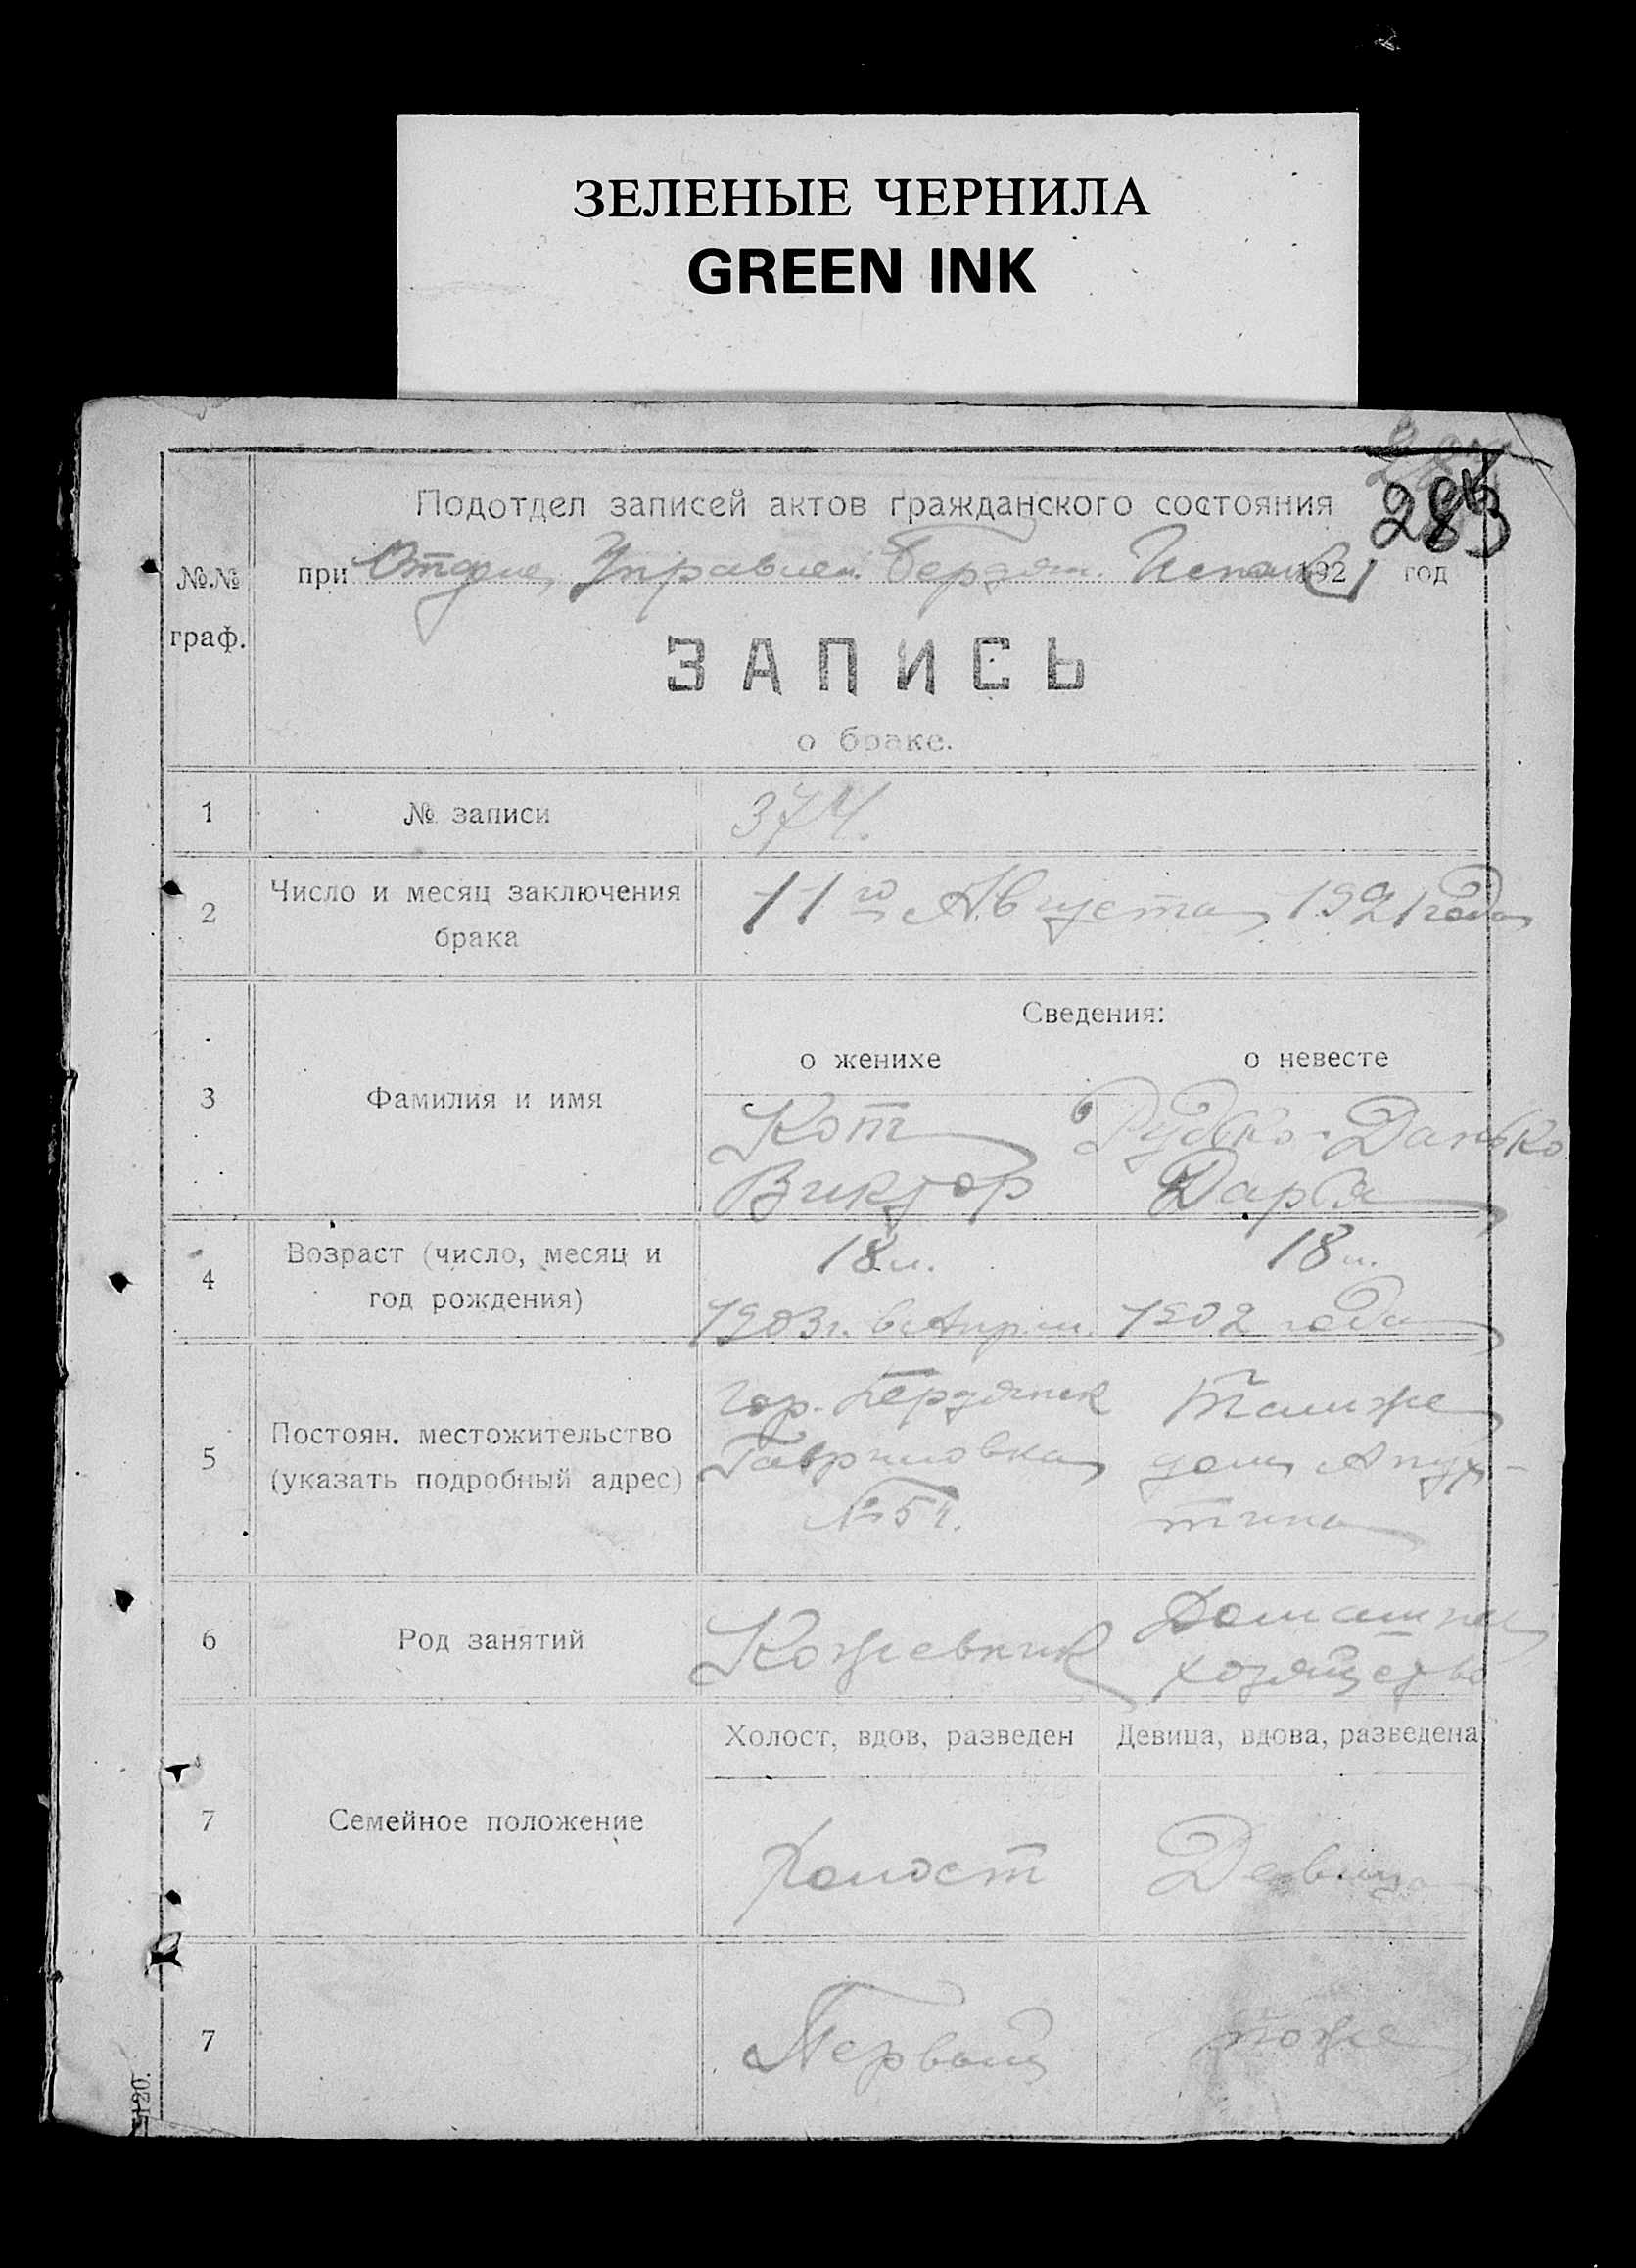 ЗЕЛЕНЫЕ ЧЕРНИЛА
GREEN INK
283
Подотдел записей актов гражданского состояния
№.№ граф.
при Отделе Управлен. Бердян. Исполк 1921 год
ЗАПИСЬ
о браке.
1 № записи 374.
2 Число и месяц заключения брака 11го Августа 1921 года
Сведения:
о женихе о невесте
3 Фамилия и имя
Кот Рудько-Данько
Виктор Дарья
4 Возраст (число, месяц и год рождения)
18 л. 18 л.
1903 г. в Апрел. 1902 года
5 Постоян. местожительство (указать подробный адрес)
гор. Бердянск Там же
Гавриловка дом Апух-
№ 51. тина
6 Род занятий
Кожевник Домашнее
хозяйство
Холост, вдов, разведен Девица, вдова, разведена
7 Семейное положение
Холост Девица
7 Первый тоже
120.